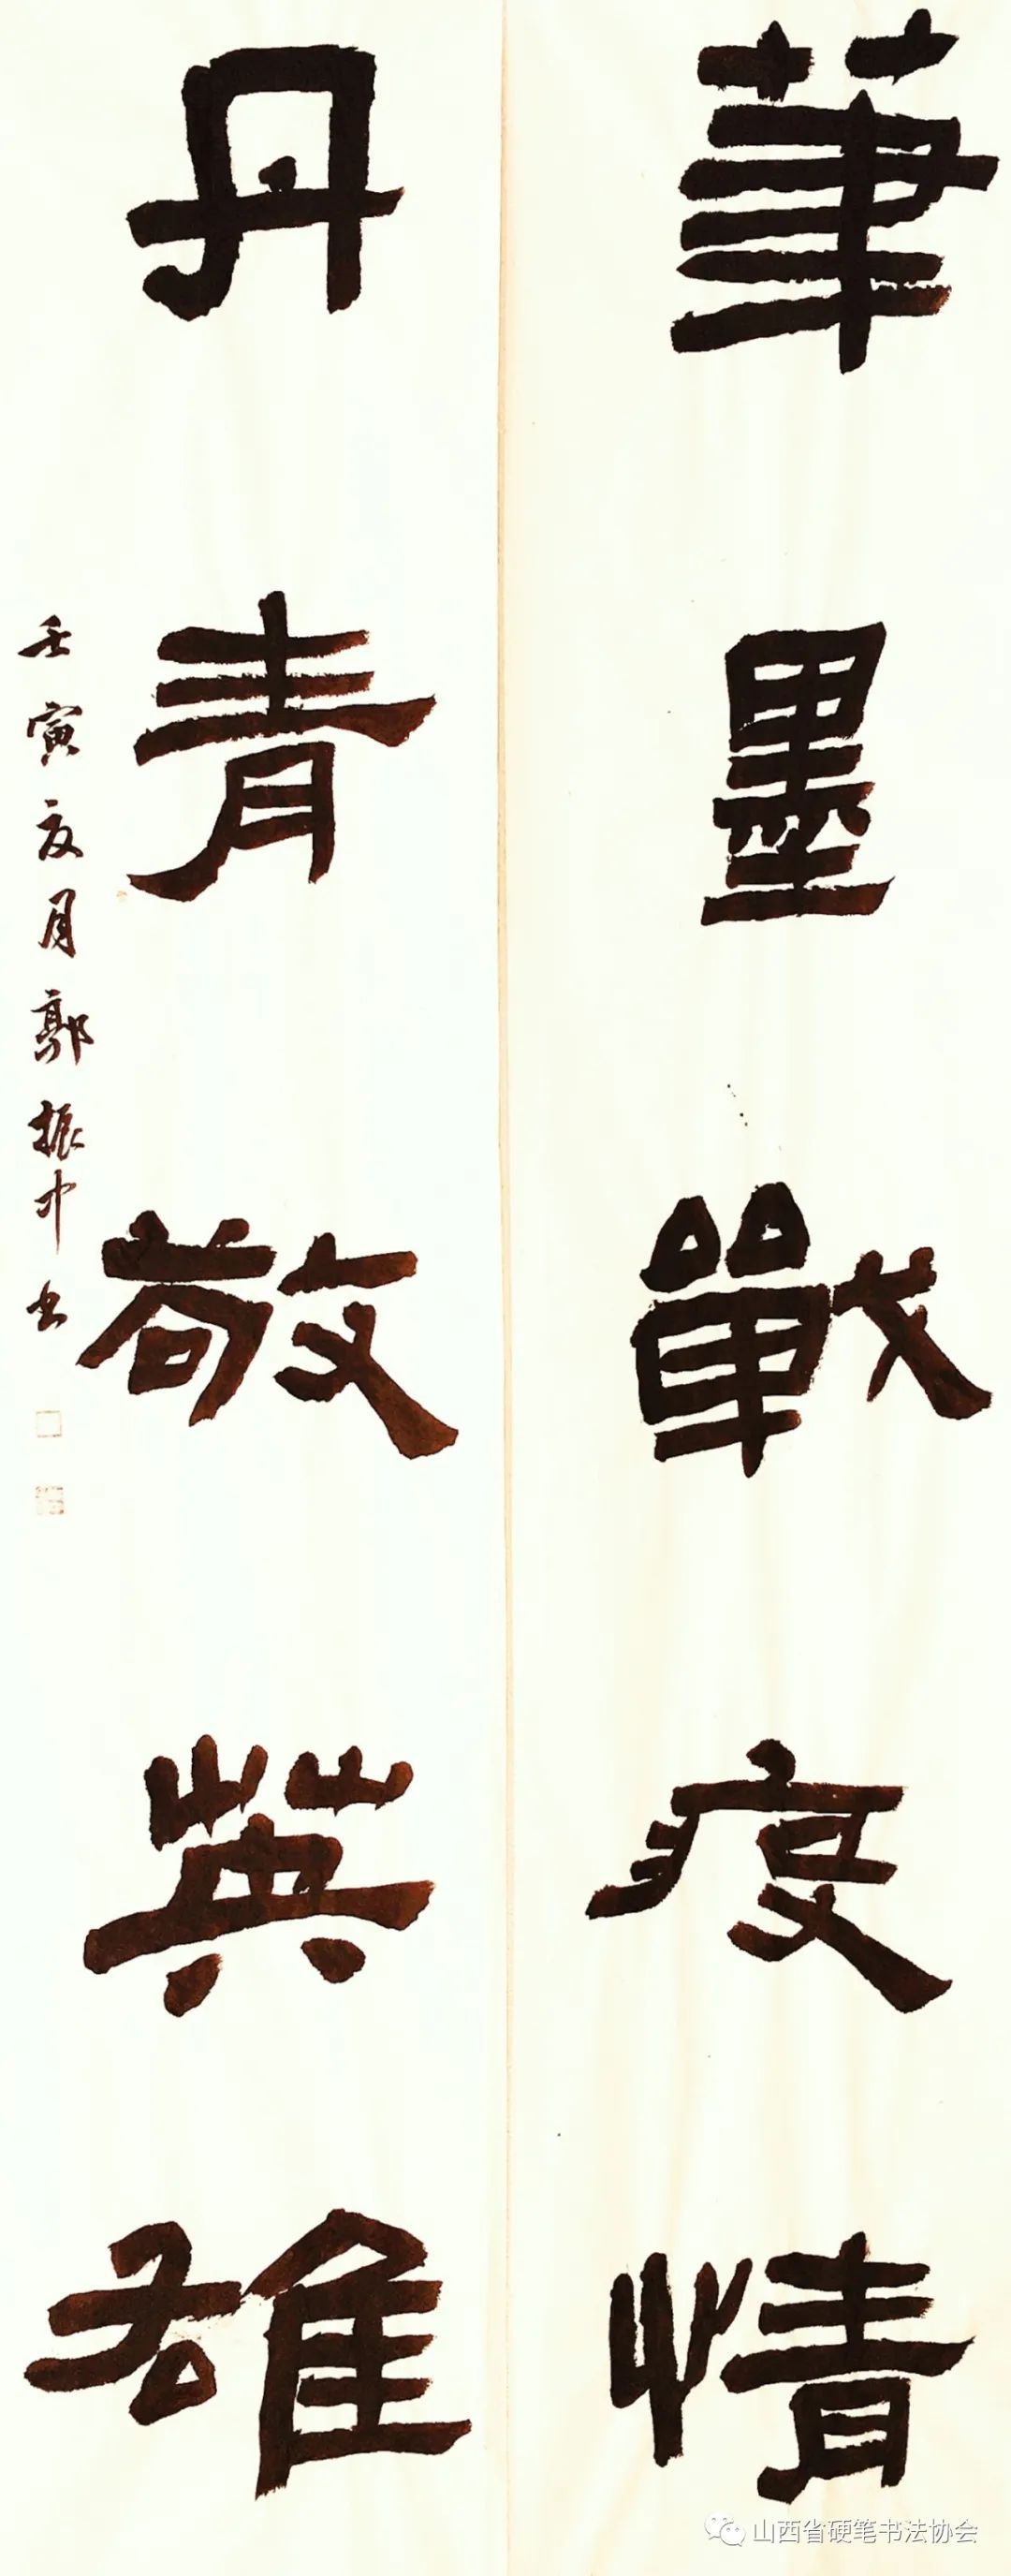 筆墨戰疫情
丹青敬英雄
壬寅夏月郭振中书
山西省硬笔书法协会